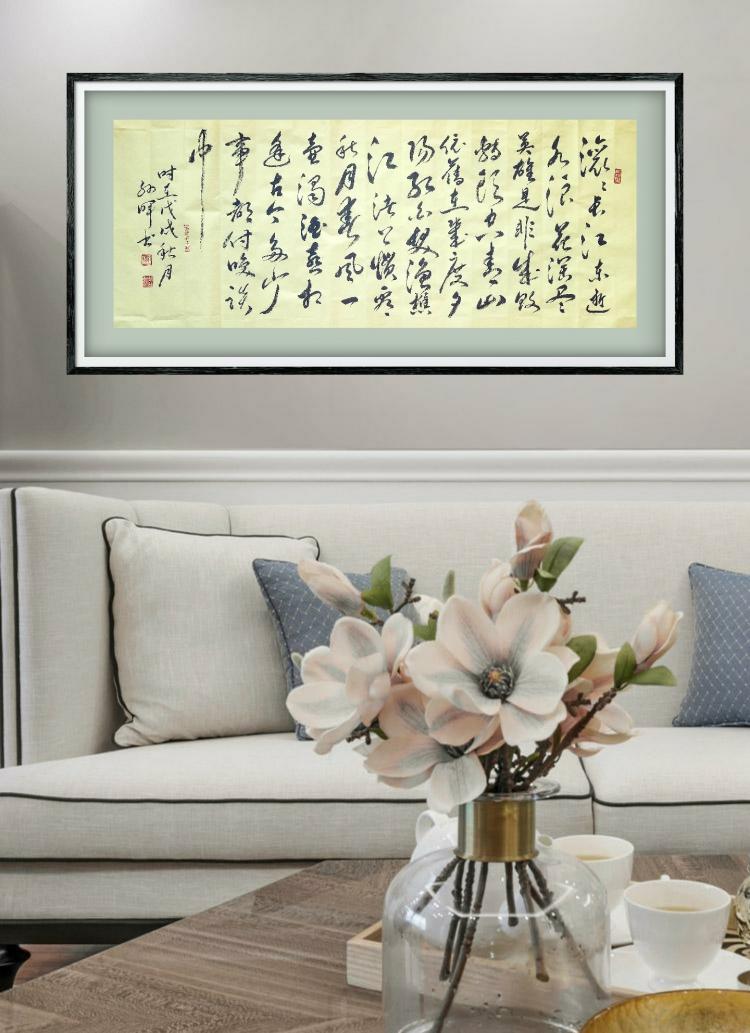 滚々长江东逝
水浪花淘尽
英雄是非成败
转头空青山
依舊在几度夕
阳红白发渔樵
江渚上惯看
秋月春风一
壶浊酒喜相
逢古今多少
事都付笑谈
中
时在戊戌秋月
孙晖书